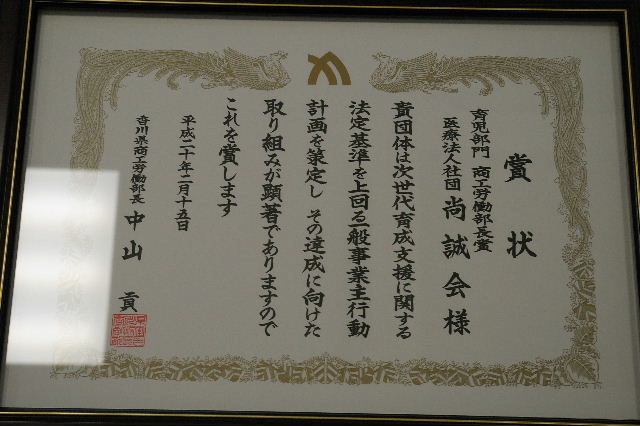 賞状
育児部門 商工労働部長賞
医療法人社団 尚誠会様
貴団体は次世代育成支援に関する
法定基準を上回る一般事業主行動
計画を策定し その達成に向けた
取り組みが顕著でありますので
これを賞します
平成二十年二月十五日
香川県商工労働部長 中山 貢